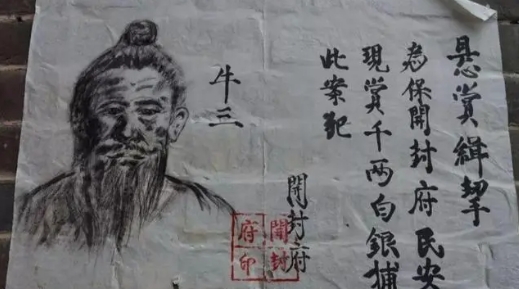 悬赏緝拏
為保開封府民安
現賞千两白銀捕
此案犯
開封府
牛三
開封
府印